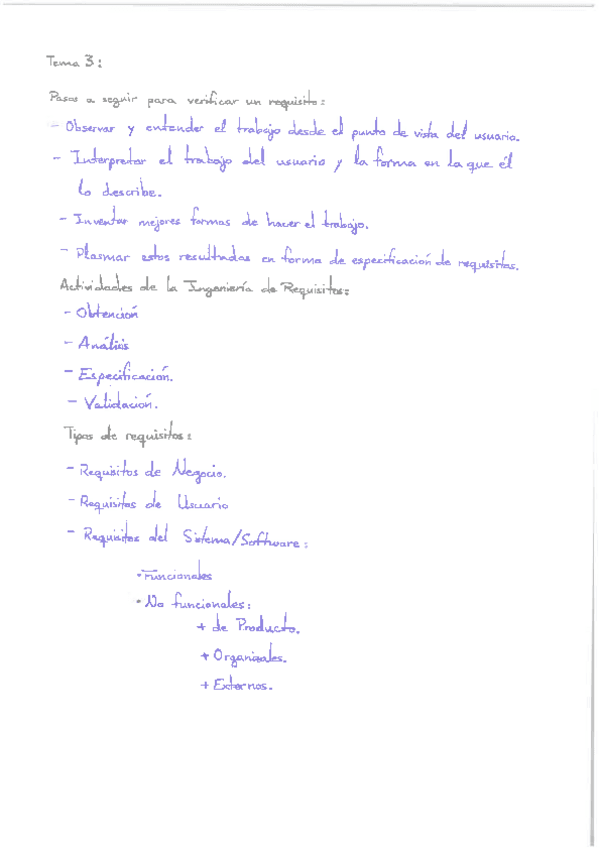 Tema 3:
Pasos a seguir para verificar un requisito:
- Observar y entender el trabajo desde el punto de vista del usuario.
- Interpretar el trabajo del usuario y la forma en la que él
lo describe.
- Inventar mejores formas de hacer el trabajo.
- Plasmar estos resultados en forma de especificación de requisitos.
Actividades de la Ingeniería de Requisitos:
- Obtención
- Análisis
- Especificación.
- Validación.
Tipos de requisitos:
- Requisitos de Negocio.
- Requisitos de Usuario
- Requisitos del Sistema/Software:
· Funcionales
· No funcionales:
+ de Producto.
+ Organizales.
+ Externos.